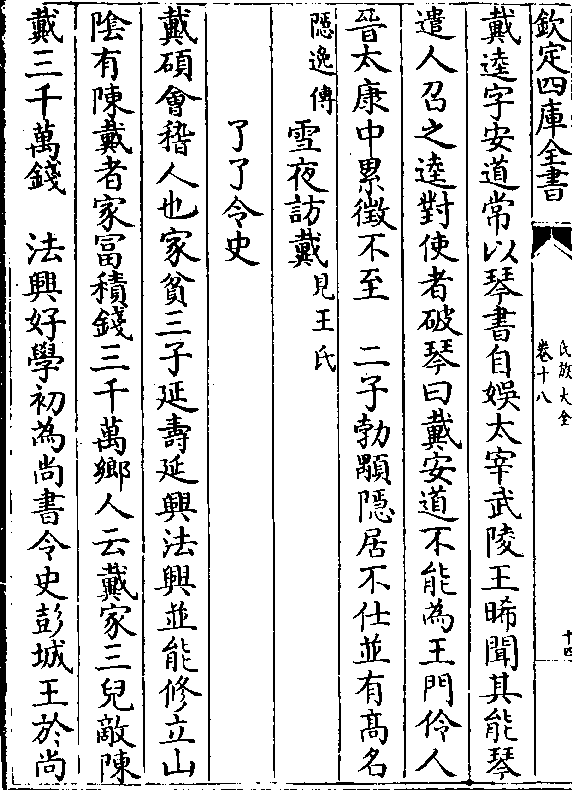 欽定四庫全書
氏族大全
卷十八
十四
戴逵字安道常以琴書自娯太宰武陵王晞聞其能琴
遣人召之逵對使者破琴曰戴安道不能為王門伶人
晉太康中累徵不至　二子勃顒隱居不仕並有髙名
隱逸傳
雪夜訪戴見王氏
了了令史
戴碩㑹稽人也家貧三子延壽延興法興並能修立山
隂有陳戴者家冨積錢三千萬鄉人云戴家三兒敵陳
戴三千萬錢　法興好學初為尚書令史彭城王於尚